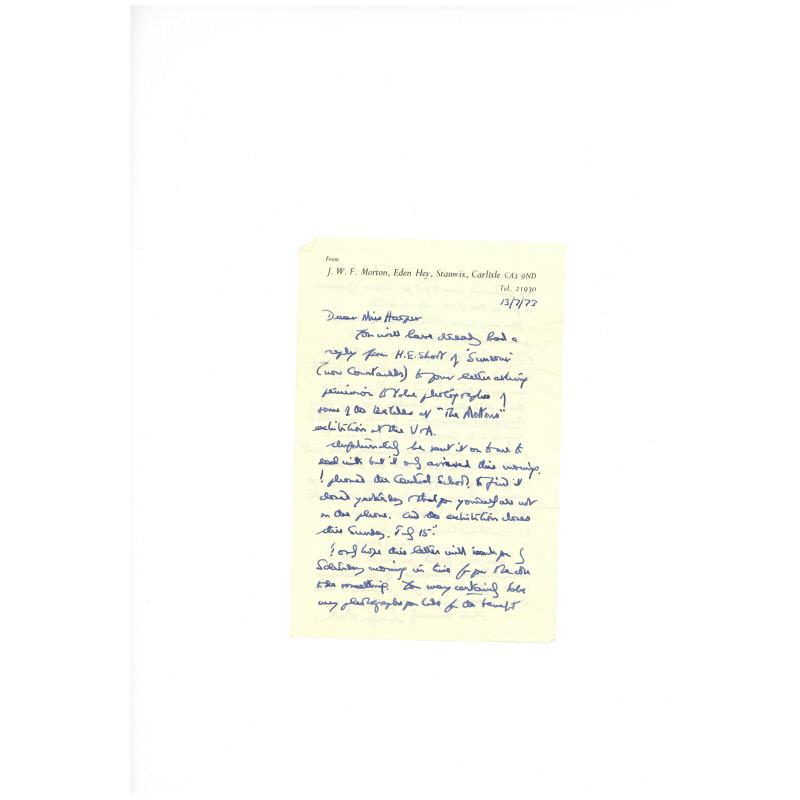 From
J. W. F. Morton, Eden Hey, Stanwix, Carlisle CA3 9ND
Tel. 21930
13/7/73
Dear Miss Harper
You will have already had a
reply from H.E. Short of 'Sundour'
(now Courtaulds) to your letter asking
permission to take photographs of
some of the textiles at "The Mortons"
exhibition at the V&A.
Unfortunately he sent it on to me to
deal with but it only arrived this morning.
I phoned the Central School, to find it
closed yesterday & that you yourself are not
on the phone. And the exhibition closes
this Sunday, July 15th.
I only hope this letter will reach you
Saturday morning in time for you to
to do something. You may certainly take
any photographs you like for the benefit